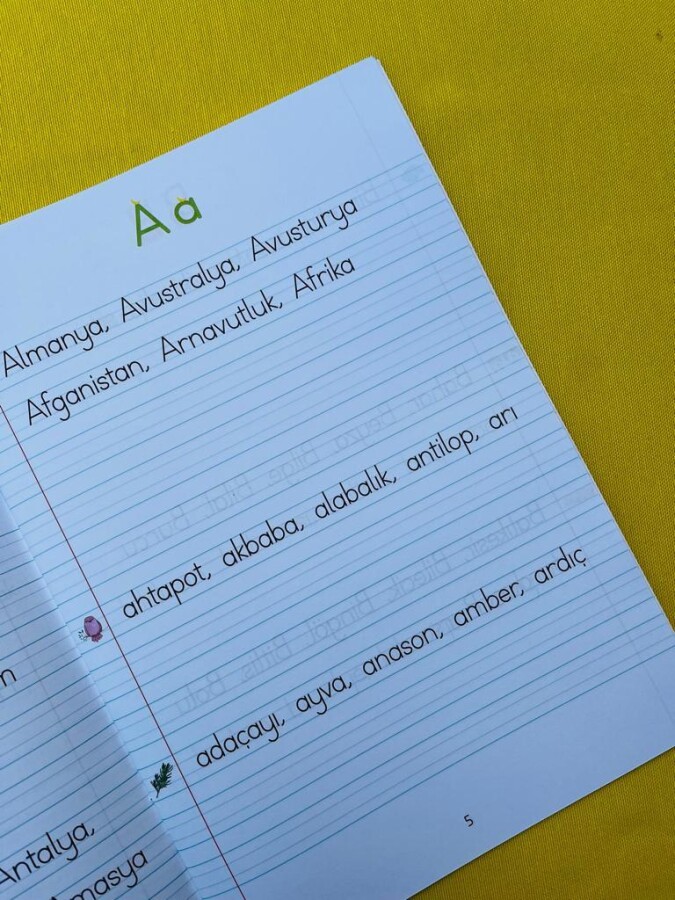 A a
Almanya, Avustralya, Avusturya
Afganistan, Arnavutluk, Afrika
ahtapot, akbaba, alabalık, antilop, arı
adaçayı, ayva, anason, amber, ardıç
5
Antalya,